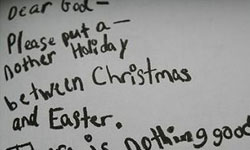 Dear God—
Please put a—
nother Holiday
between Christmas
and Easter.
is nothing good